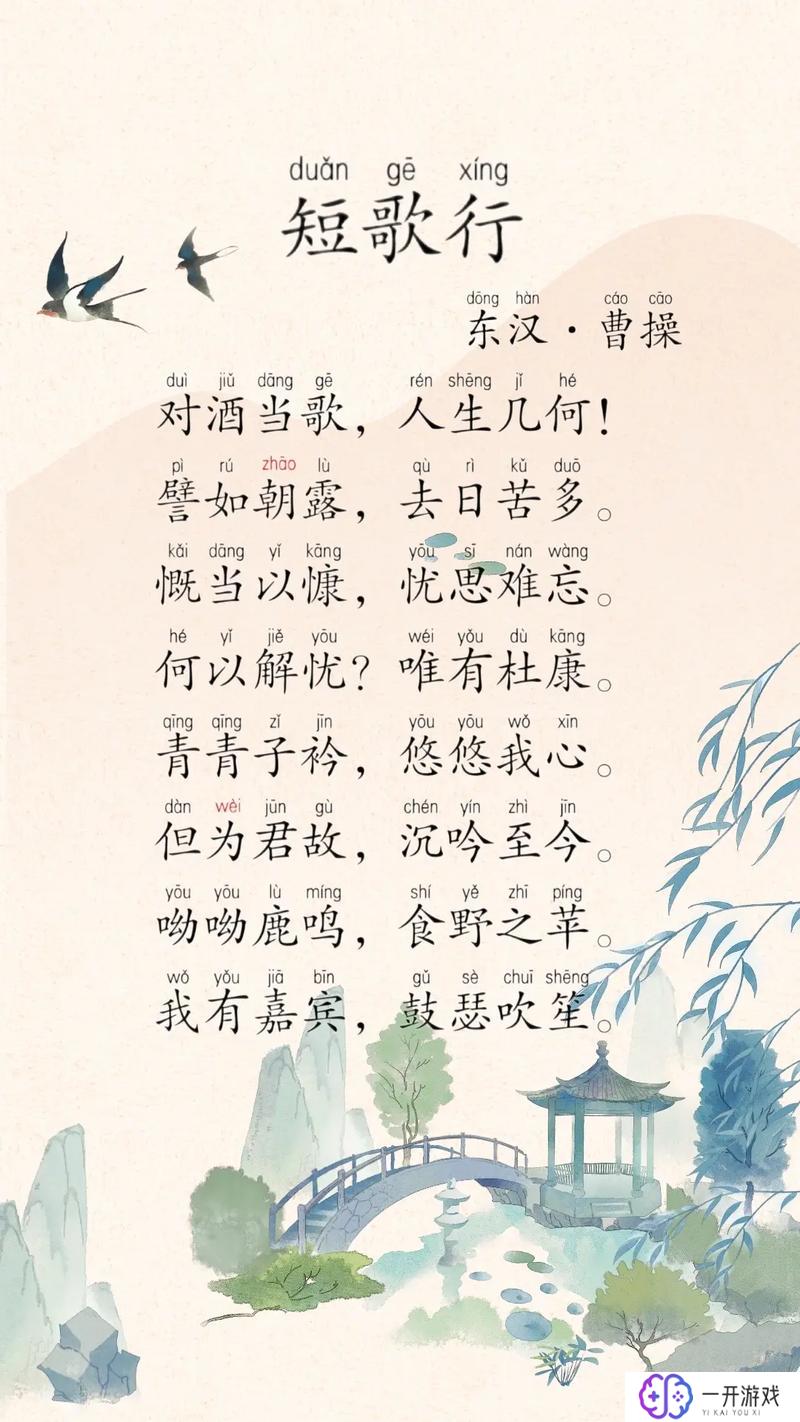 duǎn gē xíng
短歌行
dōng hàn cáo cāo
东汉·曹操
duì jiǔ dāng gē rén shēng jǐ hé
对酒当歌，人生几何！
pì rú zhāo lù qù rì kǔ duō
譬如朝露，去日苦多。
kǎi dāng yǐ kāng yōu sī nán wàng
慨当以慷，忧思难忘。
hé yǐ jiě yōu wéi yǒu dù kāng
何以解忧？唯有杜康。
qīng qīng zǐ jīn yōu yōu wǒ xīn
青青子衿，悠悠我心。
dàn wèi jūn gù chén yín zhì jīn
但为君故，沉吟至今。
yōu yōu lù míng shí yě zhī píng
呦呦鹿鸣，食野之苹。
wǒ yǒu jiā bīn gǔ sè chuī shēng
我有嘉宾，鼓瑟吹笙。
一开游戏
YI KAI YOU XI